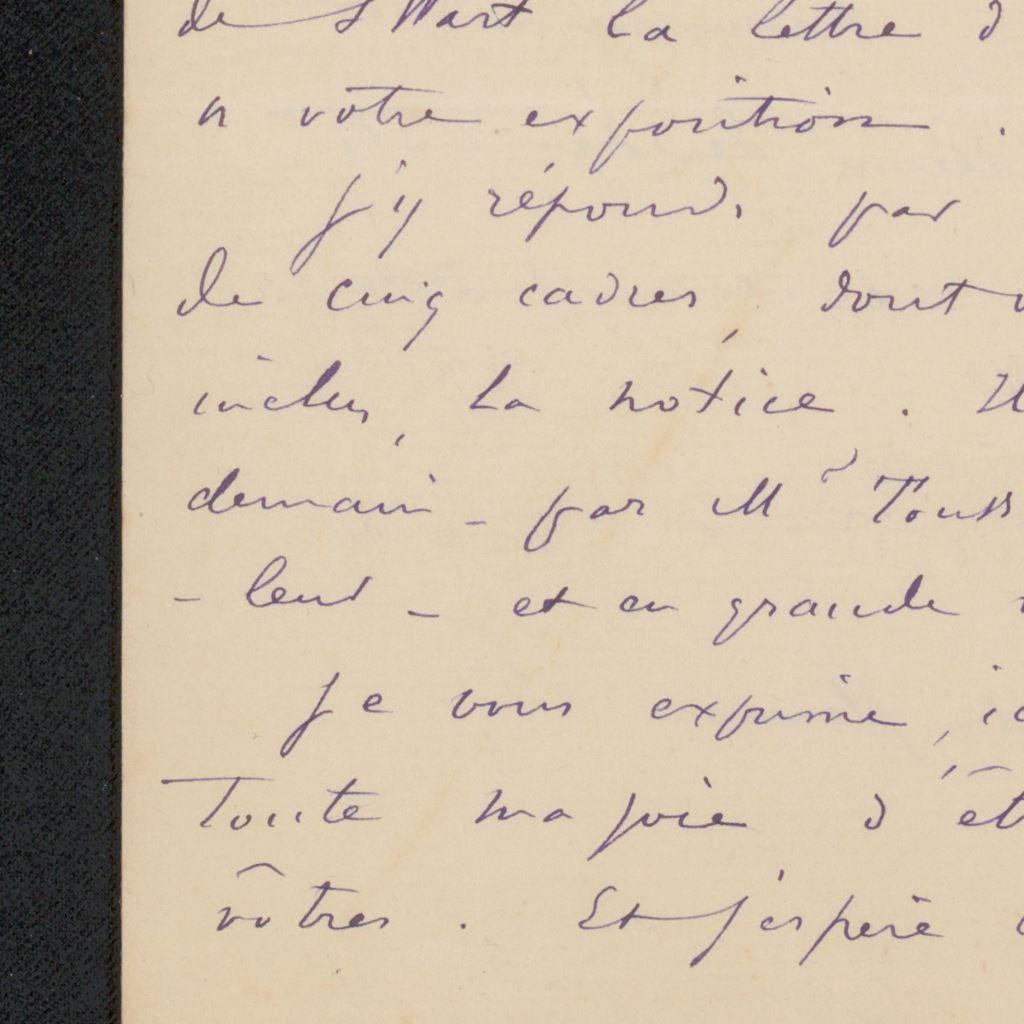 de la lettre d
à votre exposition .
J'y réponds par
de cinq cadres, dont v
inclus, la notice . Il
demain - par Mr Touss
- leur - et en grande
Je vous exprime, ic
Toute ma joie d'êt
vôtres . Et j'espère